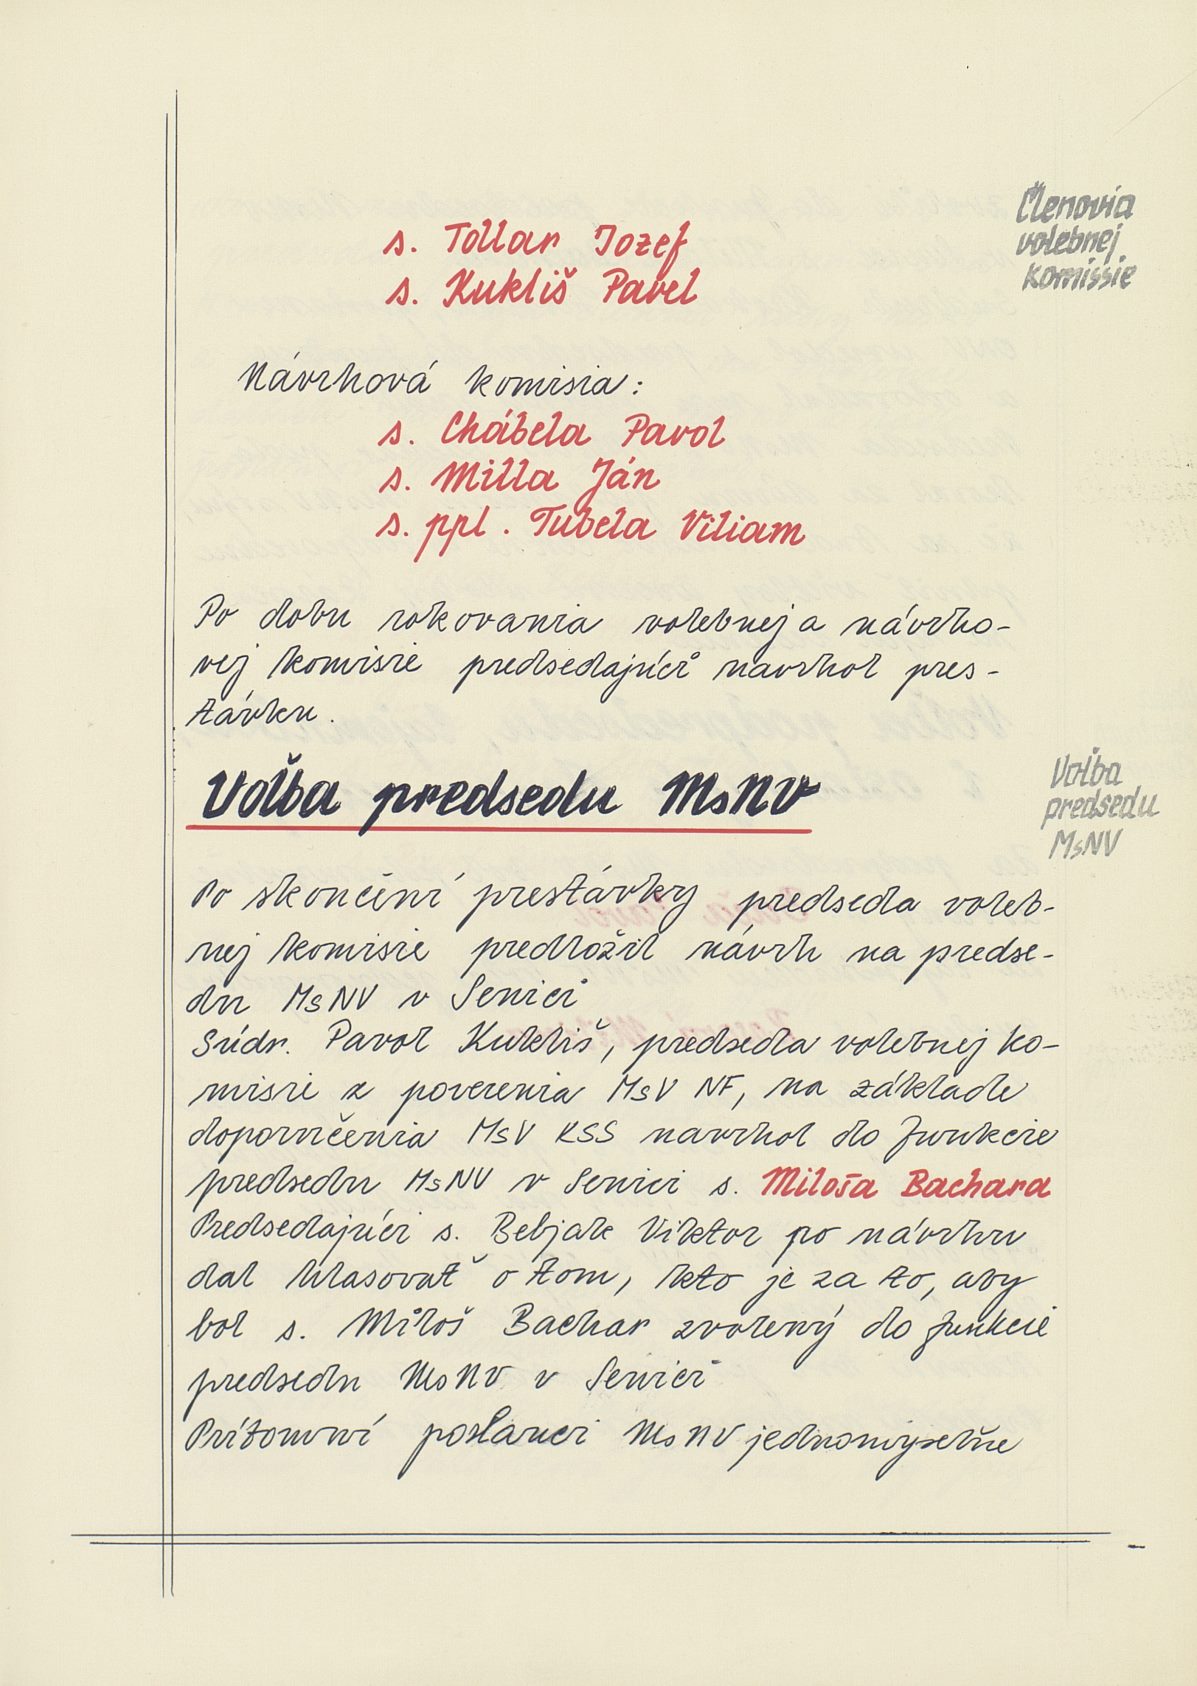 Členovia
volebnej
komissie
s. Tollar Jozef
s. Kukliš Pavel
Návrhová komisia:
s. Chábela Pavol
s. Milla Ján
s. ppl. Tubela Viliam
Po dobu rokovania volebnej a návrho-
vej komisie predsedajúci navrhol pres-
távku.
Voľba predsedu MsNV
Voľba
predsedu
MsNV
Po skončení prestávky predseda voleb-
nej komisie predložil návrh na predse-
du MsNV v Senici
Súdr. Pavol Kukliš, predseda volebnej ko-
misie z poverenia MsV NF, na základe
doporučenia MsV KSS navrhol do funkcie
predsedu MsNV v Senici s. Miloša Bachara
Predsedajúci s. Bebjak Viktor po návrhu
dal hlasovať o tom, kto je za to, aby
bol s. Miloš Bachar zvolený do funkcie
predsedu MsNV v Senici
Prítomní poslanci MsNV jednomyseľne